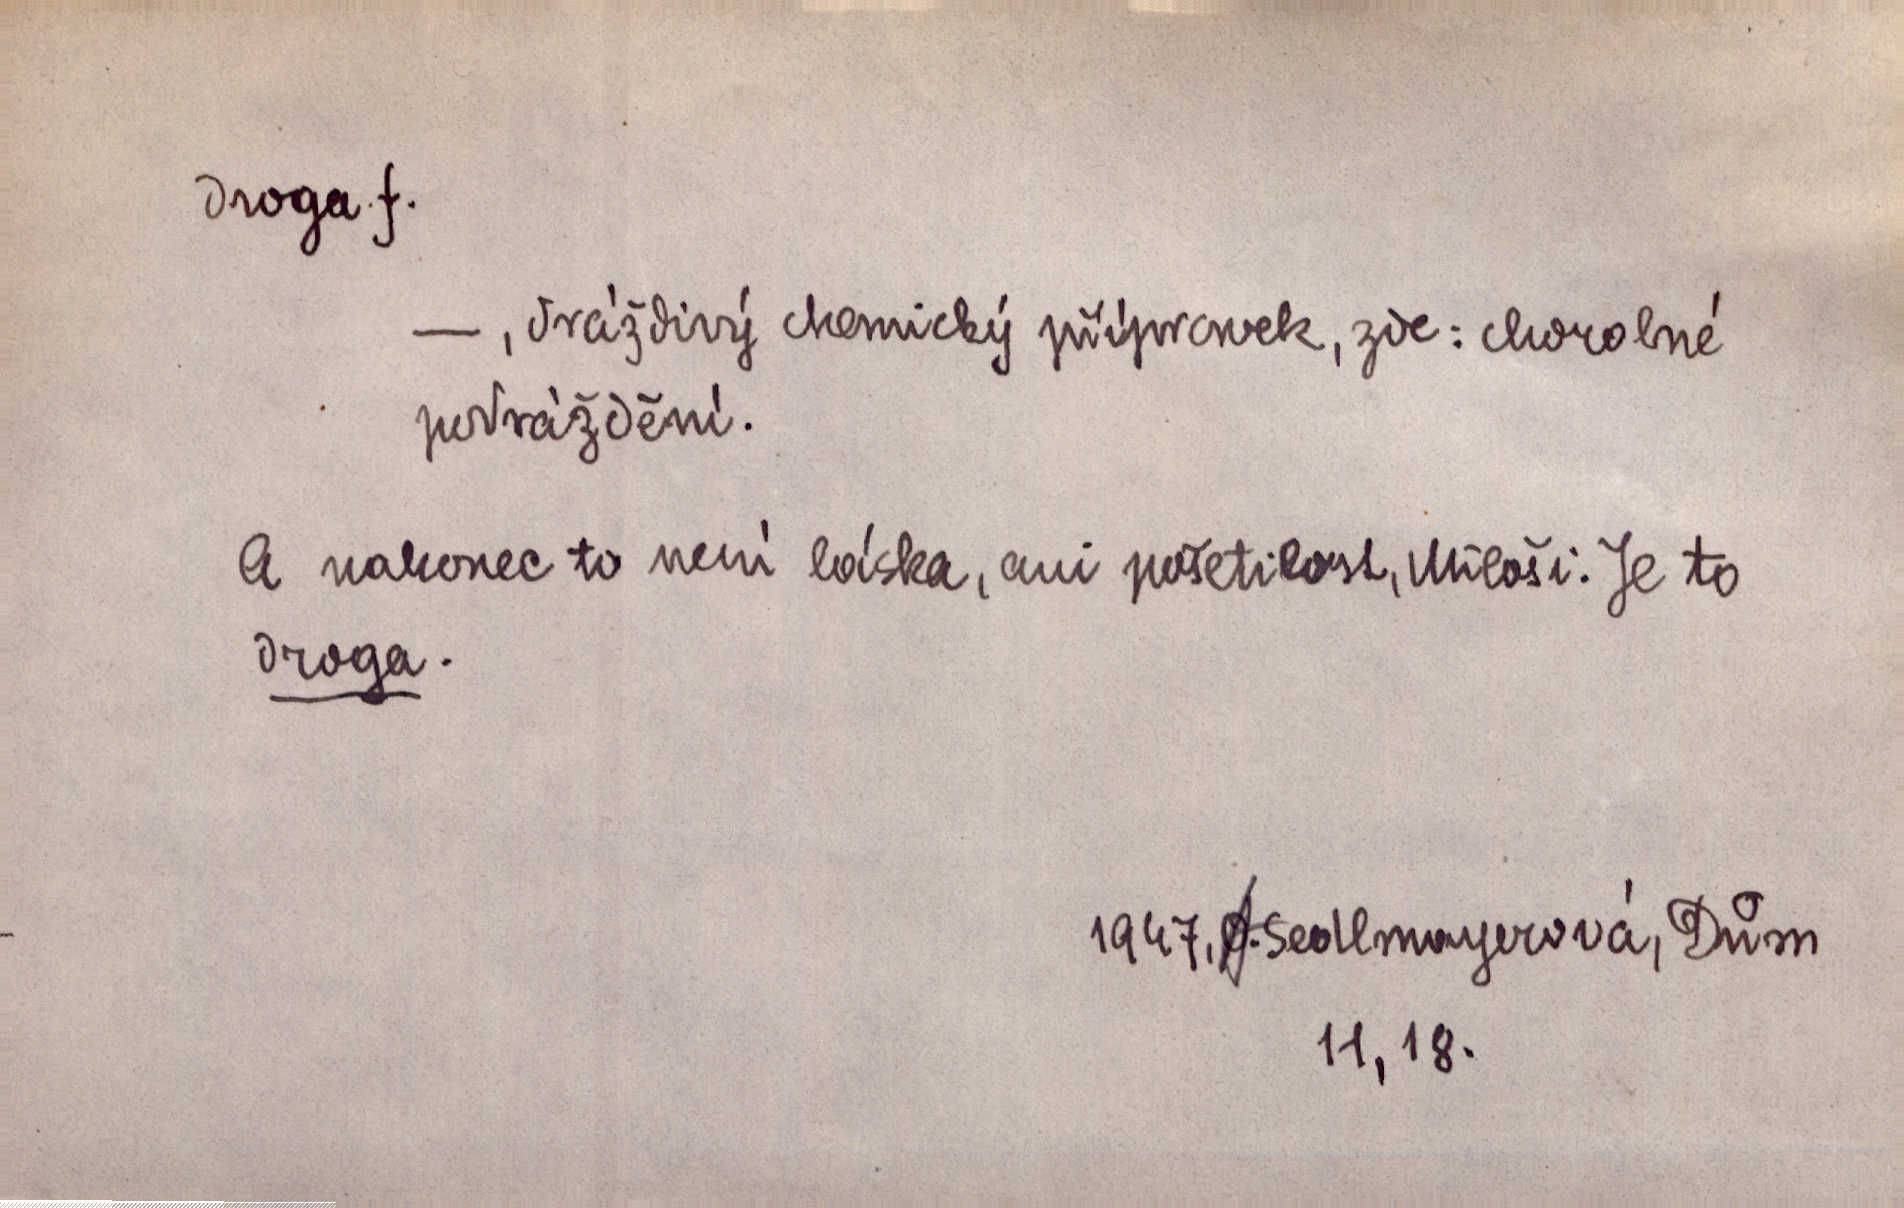 droga f.
—, dráždivý chemický přípravek, zde: chorobné
podráždění.
A nakonec to není láska, ani pošetilost, Miloši. Je to
droga.
1947, Sedlmayerová, Dům
11, 18.